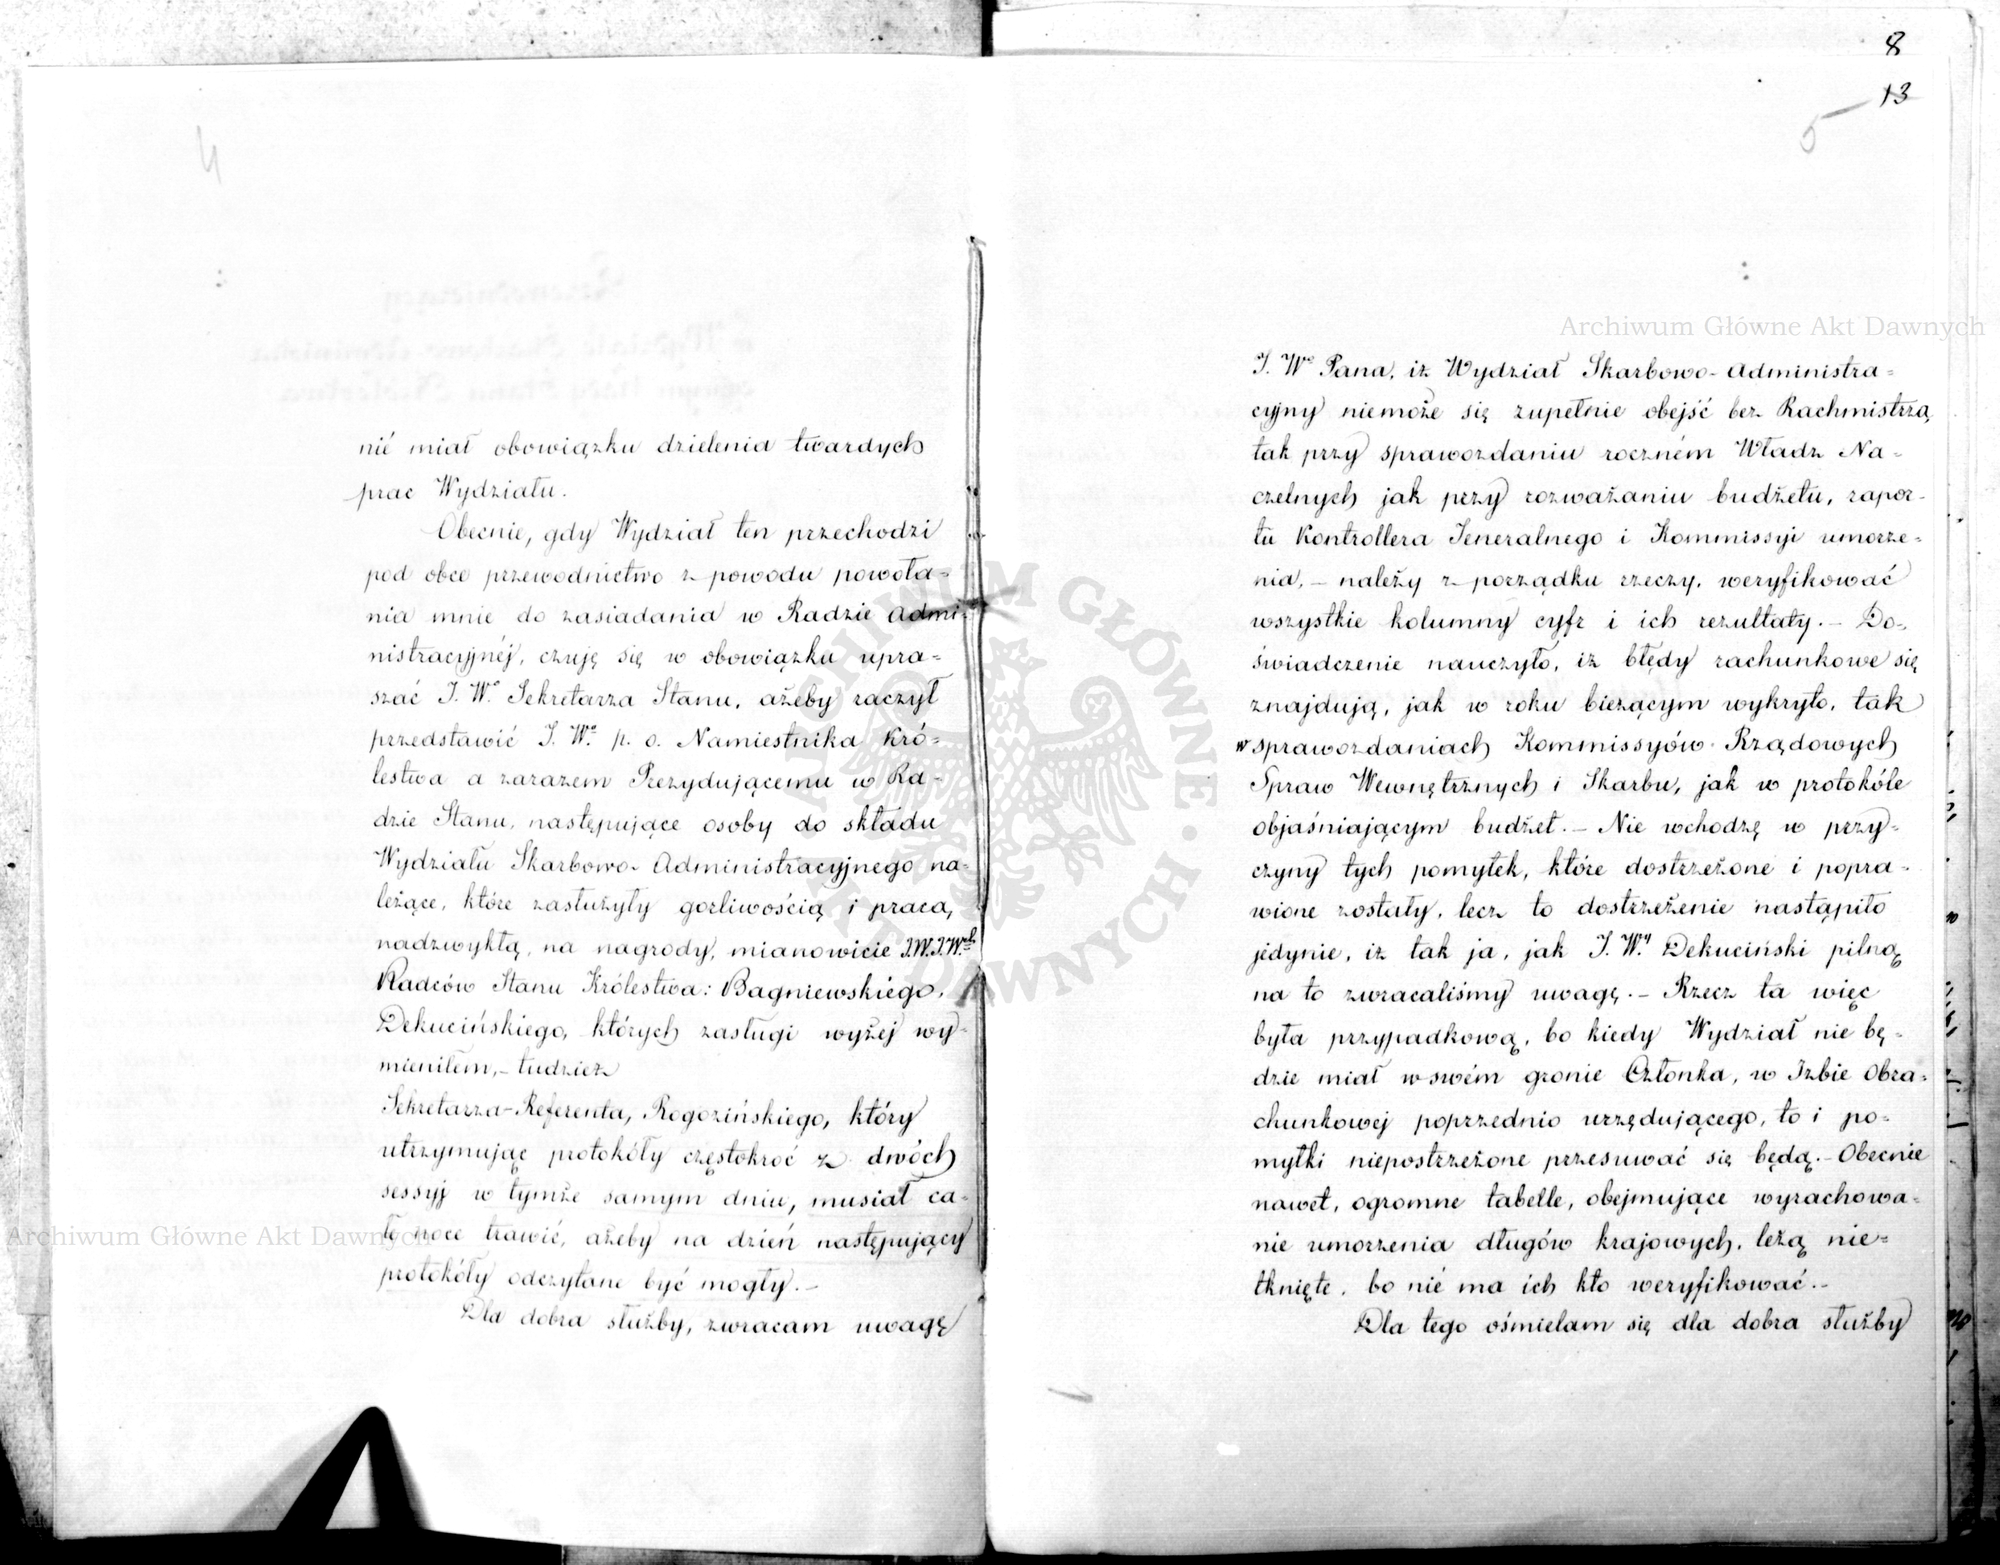 4
nié miał obowiązku dzielenia twardych
prac Wydziału.
Obecnie, gdy Wydział ten przechodzi
pod obce przewodnictwo z powodu powoła-
nia mnie do zasiadania w Radzie Admi-
nistracyjnéj, czuję się w obowiązku upra-
szać J. W° Sekretarza Stanu, ażeby raczył
przedstawić J. W° p. o. Namiestnika Kró-
lestwa a zarazem Prezydującemu w Ra-
dzie Stanu, następujące osoby do składu
Wydziału Skarbowo-Administracyjnego na-
leżące, które zasłużyły gorliwością i pracą,
nadzwykłą, na nagrody, mianowicie J.W.J.W.
Radców Stanu Królestwa: Bagniewskiégo,
Dekucińskiego, których zasługi wyżéj wy-
mieniłem,- tudzież
Sekretarza-Referenta, Rogozińskiego, który
utrzymując protokóły częstokroć z dwóch
sessyj w tymże samym dniu, musiał ca-
łę noce trawić, ażeby na dzień następujący
protokóły odczytane być mogły.-
Dla dobra służby, zwracam uwagę
8
13
5
J. W° Pana, iż Wydział Skarbowo-Administra-
cyjny niemoże się zupełnie obejść bez Rachmistrza,
tak przy sprawozdaniu roczném Władz Na-
czelnych jak przy rozważaniu budżetu, rapor-
tu Kontrollera Jeneralnego i Kommissyi umorze-
nia,- należy z porządku rzeczy, weryfikować
wszystkie kolumny cyfr i ich rezultaty.- Do-
świadczenie nauczyło, iż błędy rachunkowe się
znajdują, jak w roku bieżącym wykryto, tak
w sprawozdaniach Kommissyów Rządowych
Spraw Wewnętrznych i Skarbu, jak w protokóle
objaśniającym budżet.- Nie wchodzę w przy-
czyny tych pomyłek, które dostrzeżone i popra-
wione zostały, lecz to dostrzeżenie nastąpiło
jedynie, iż tak ja, jak J. Wy Dekuciński pilną
na to zwracaliśmy uwagę.- Rzecz ta więc
była przypadkową, bo kiedy Wydział nie bę-
dzie miał w swém gronie Członka, w Izbie Obra-
chunkowej poprzednio urzędującego, to i po-
myłki niepostrzeżone przesuwać się będą.- Obecnie
nawet, ogromne tabelle, obejmujące wyrachowa-
nie umorzenia długów krajowych, leżą nie-
tknięte, bo nié ma ich kto weryfikować.-
Dla tego ośmielam się dla dobra służby
Archiwum Główne Akt Dawnych
Archiwum Główne Akt Dawnych
ARCHIWUM GŁÓWNE · AKT DAWNYCH ·